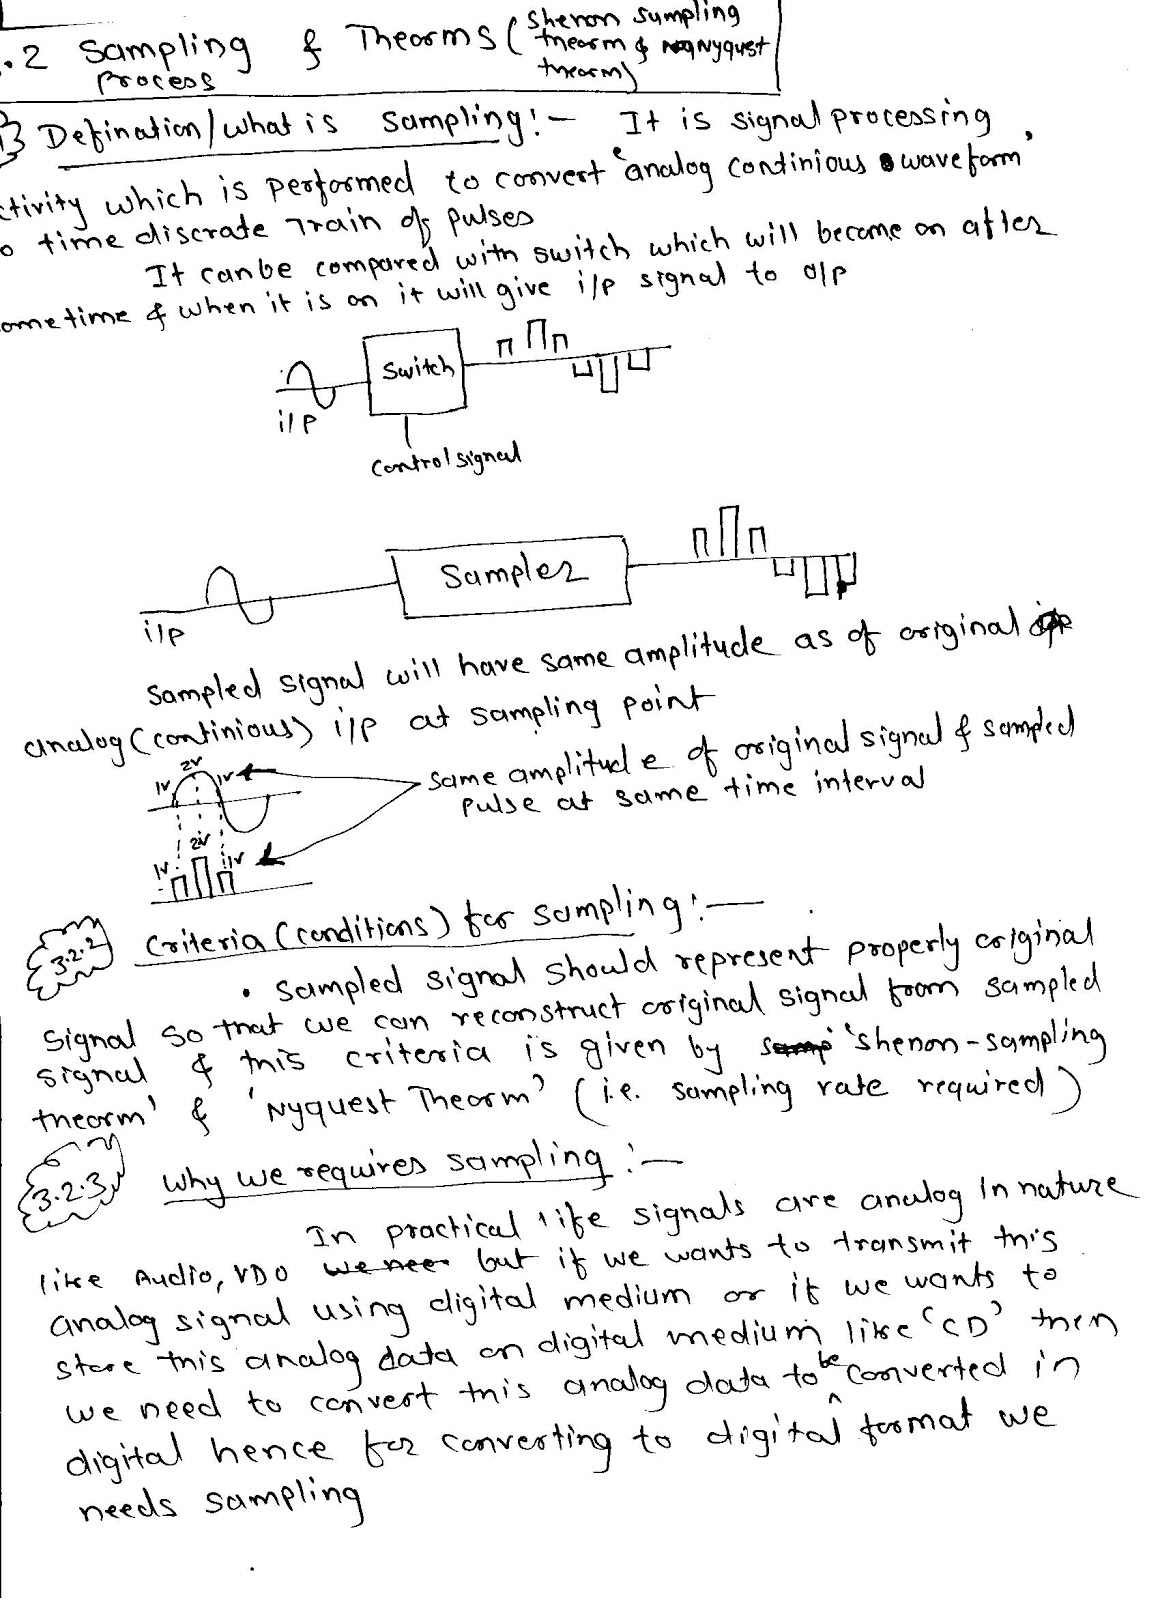 .2 Sampling & Theorms (Shenon Sampling
Process theorm & Nyquest
theorm)
Defination/what is Sampling:- It is signal processing
ctivity which is performed to convert 'analog continious waveform'
o time discrate Train of pulses
It canbe compared with switch which will become on after
ometime & when it is on it will give i/p signal to o/p
Switch
i/p
control signal
Sampler
i/p
Sampled signal will have same amplitude as of original
analog (continious) i/p at sampling point
1v 2v 1v
same amplitude of original signal & sampled
pulse at same time interval
1v 2v 1v
3.2.2 Criteria (conditions) for sampling:-
• Sampled signal should represent properly original
signal so that we can reconstruct original signal from sampled
signal & this criteria is given by 'shenon-sampling
theorm' & 'Nyquest Theorm' (i.e. sampling rate required)
3.2.3 Why we requires sampling:-
In practical life signals are analog in nature
like Audio, VDO we nee but if we wants to transmit this
analog signal using digital medium or if we wants to
store this analog data on digital medium like 'CD' then
we need to convert this analog data to be converted in
digital hence for converting to digital format we
needs sampling